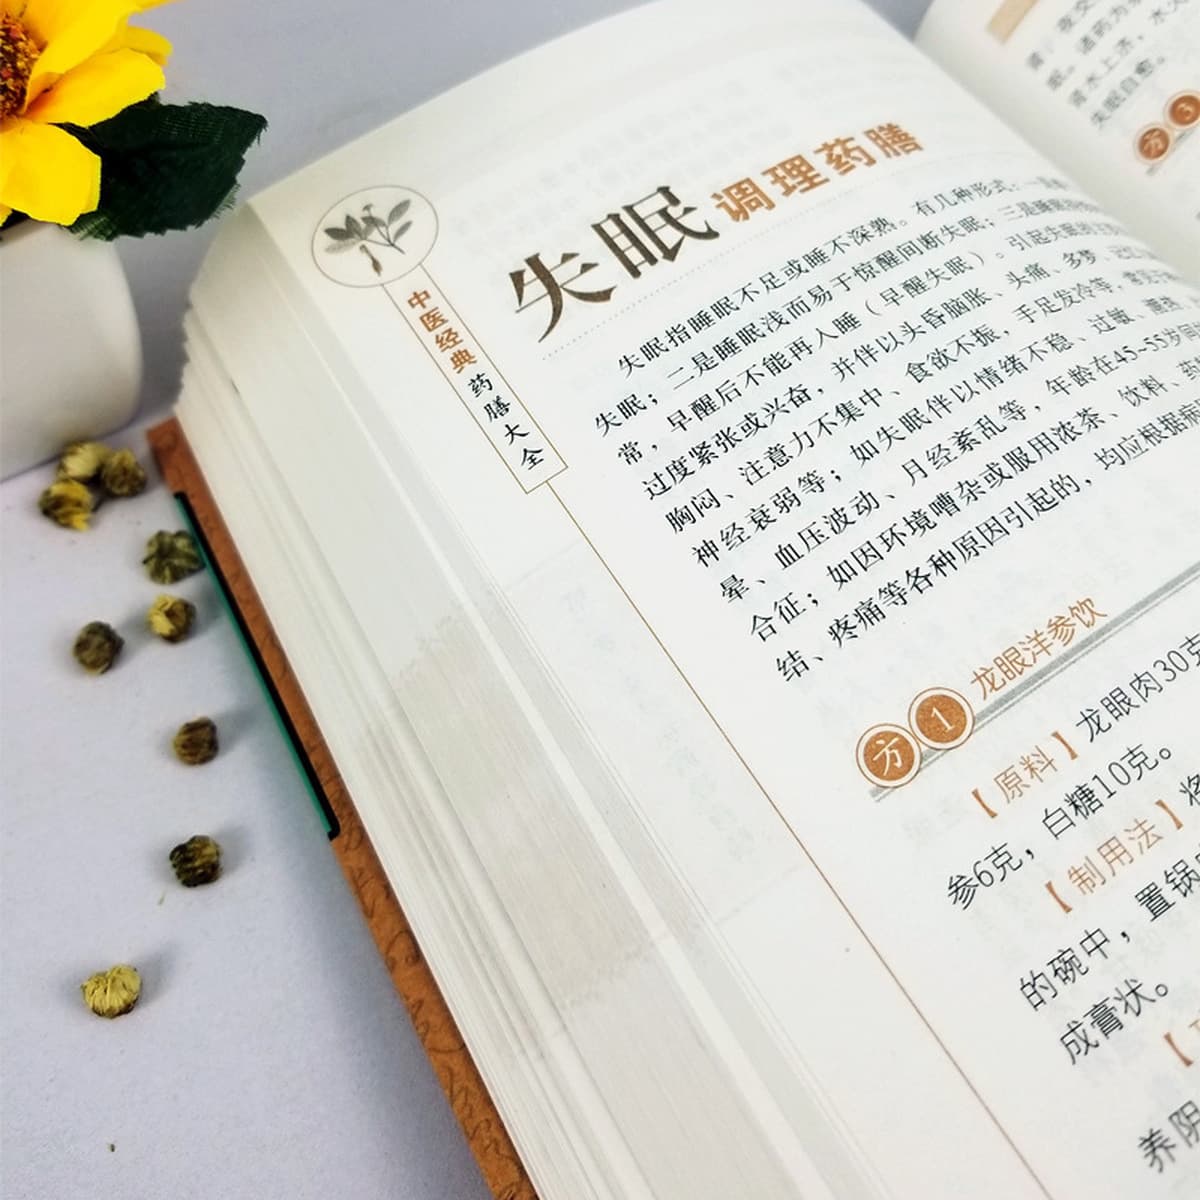 中医经典药膳大全
失眠调理药膳
失眠指睡眠不足或睡不深熟。有几种形式：一是
失眠；二是睡眠浅而易于惊醒间断失眠；三是睡眠
常，早醒后不能再入睡（早醒失眠）。引起失眠的
过度紧张或兴奋，并伴以头昏脑胀、头痛、多梦、记忆
胸闷、注意力不集中、食欲不振，手足发冷等，常见于
神经衰弱等；如失眠伴以情绪不稳、过敏、潮热、
晕、血压波动、月经紊乱等，年龄在45~55岁间
合征；如因环境嘈杂或服用浓茶、饮料、药
结、疼痛等各种原因引起的，均应根据病
方1 龙眼洋参饮
【原料】龙眼肉30克
参6克，白糖10克。
【制用法】将
的碗中，置锅
成膏状。
【
养阴
眠。诸药为
肾水上济，水火
失眠自愈。
方3